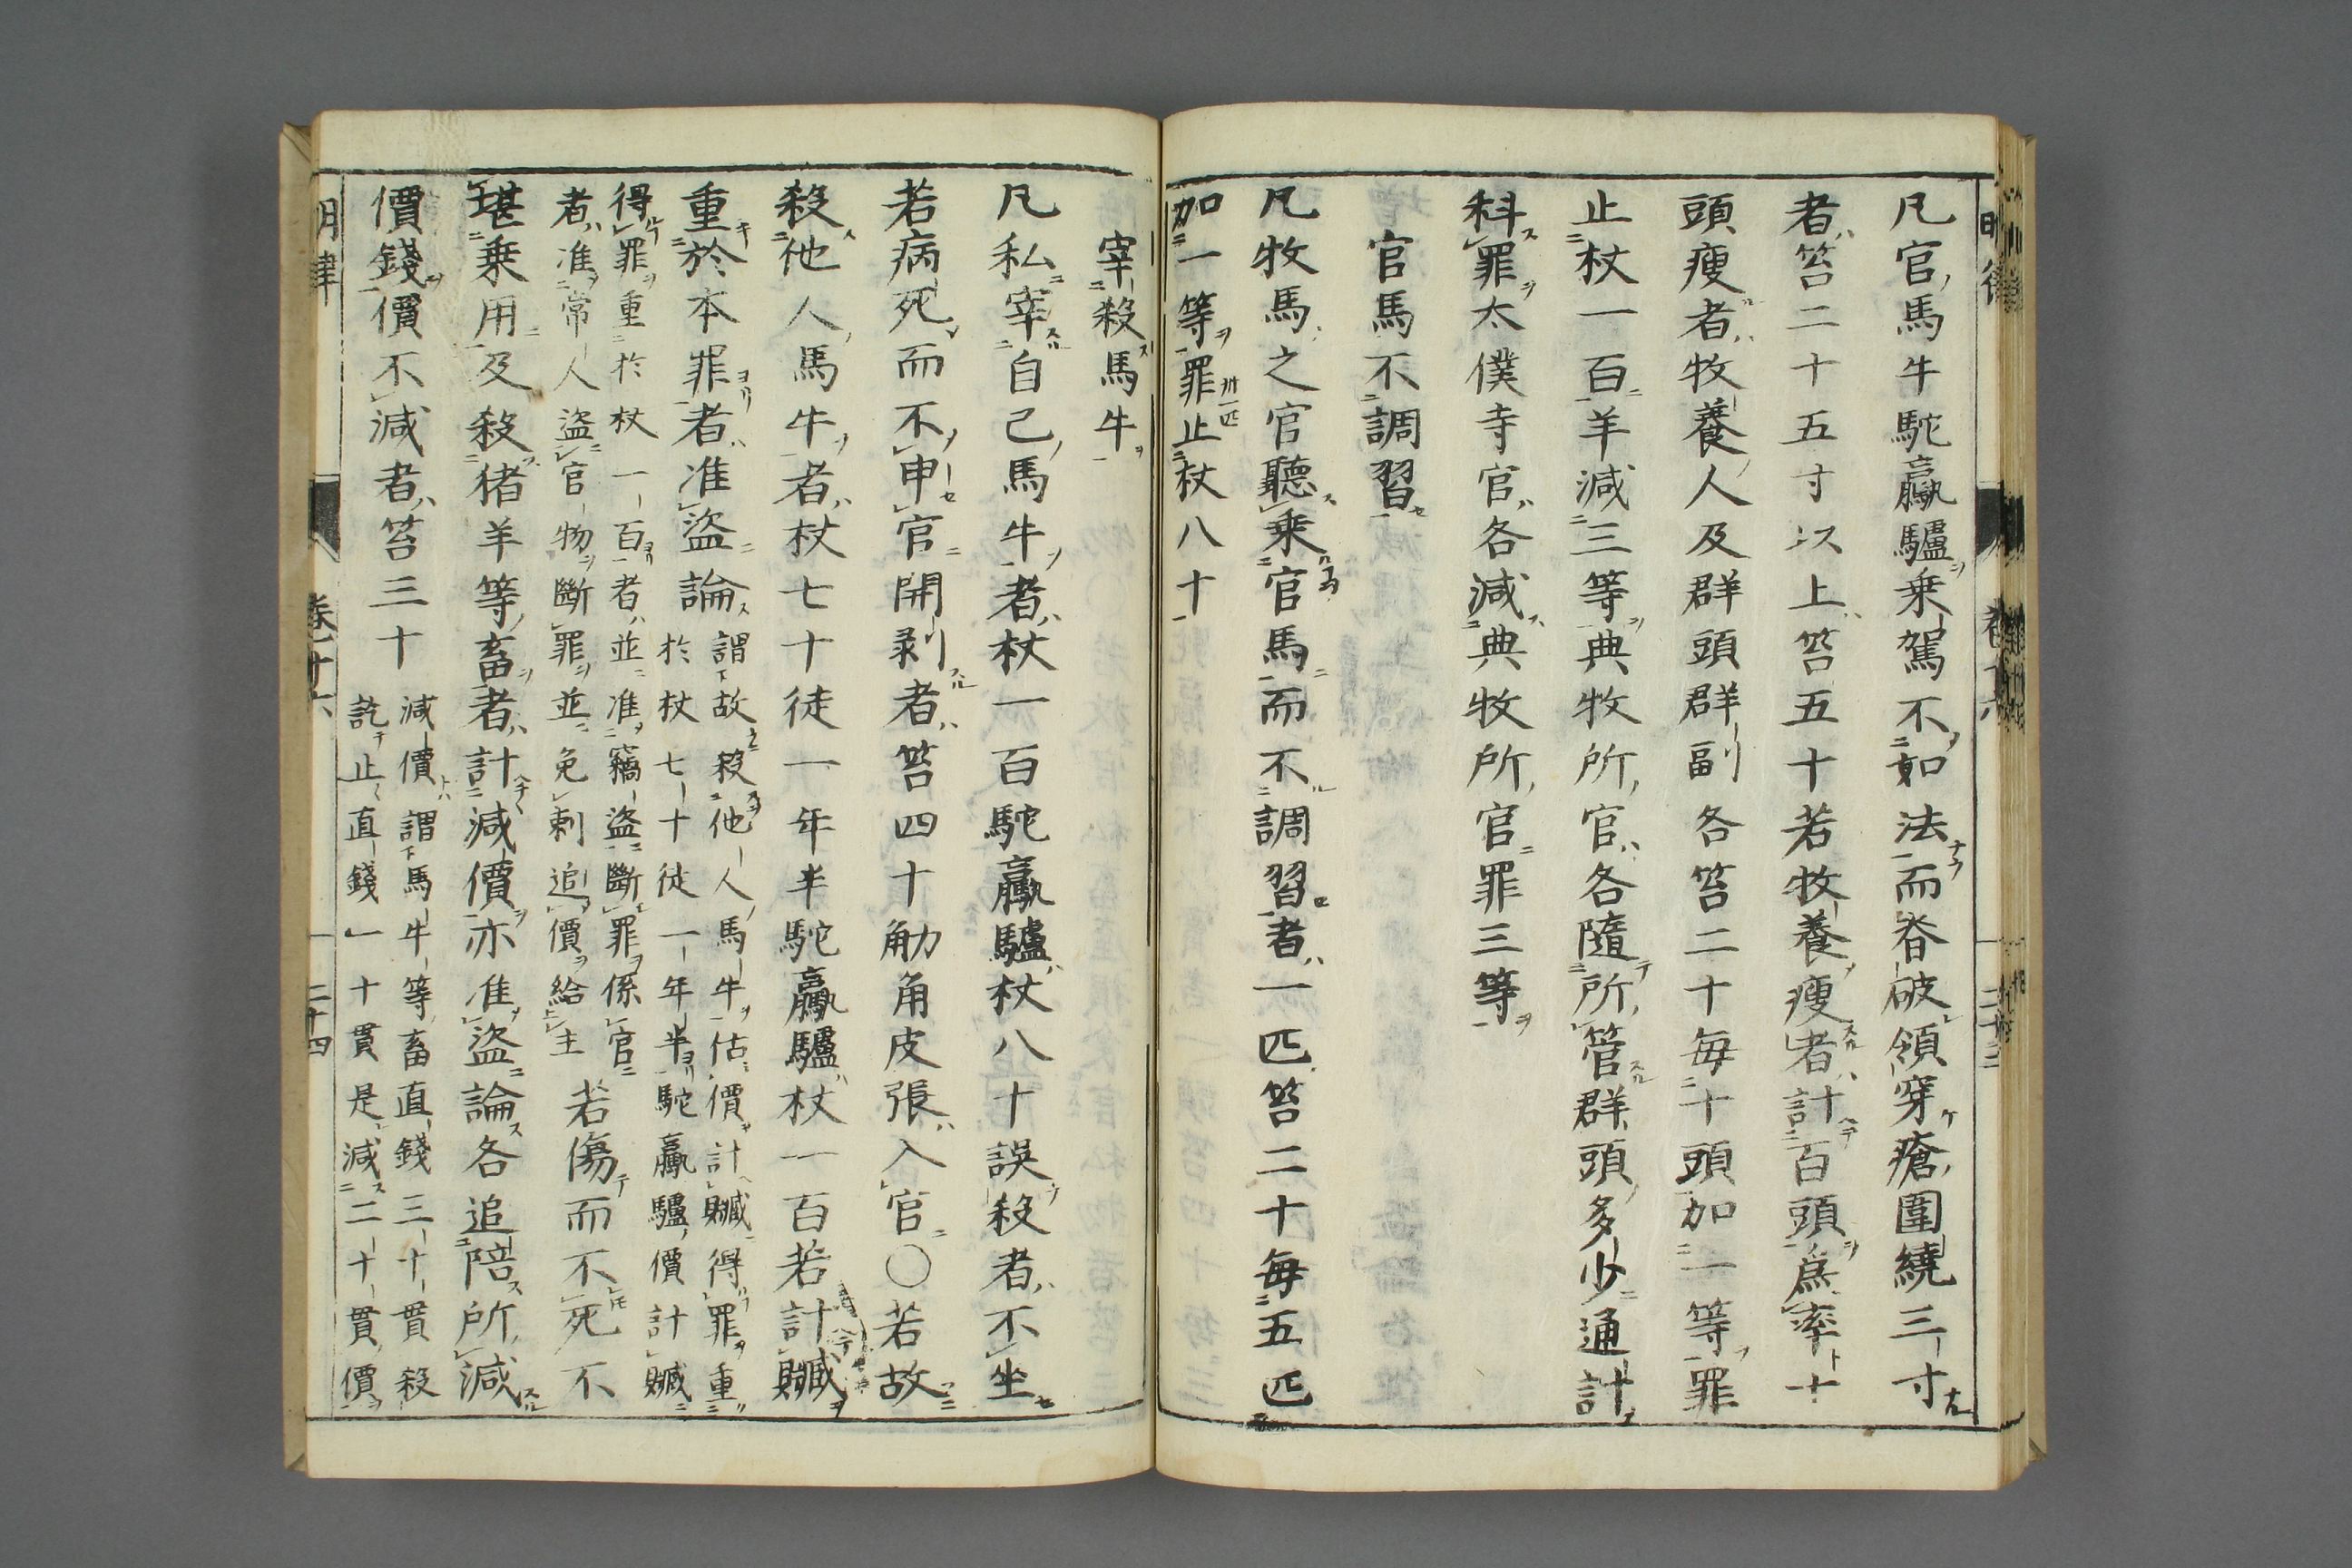 凡官馬牛駝驘驢乗駕不如法而脊破領穿瘡圍繞三寸
者笞二十五寸以上笞五十若牧養瘦者計百頭爲率十
頭瘦者牧養人及群頭群副各笞二十每十頭加一等罪
止杖一百羊減三等典牧所官各隨所管群頭多少通計
科罪太僕寺官各減典牧所官罪三等
官馬不調習
凡牧馬之官聽乗官馬而不調習者一匹笞二十每五匹
加一等罪止杖八十
宰殺馬牛
凡私宰自己馬牛者杖一百駝驘驢杖八十誤殺者不坐
若病死而不申官開剥者笞四十觔角皮張入官○若故
殺他人馬牛者杖七十徒一年半駝驘驢杖一百若計贓
重於本罪者准盜論
謂故殺他人馬牛估價計贓得罪重
於杖七十徒一年半駝驘驢價計贓
得罪重於杖一百者並准竊盜斷罪係官
者准常人盜官物斷罪並免刺追價給主
若傷而不死不
堪乗用及殺猪羊等畜者計減價亦准盜論各追陪所減
價錢價不減者笞三十
減價謂馬牛等畜直錢三十貫殺
訖止直錢一十貫是減二十貫價
明律
卷十六
二十三
明律
卷十六
二十四